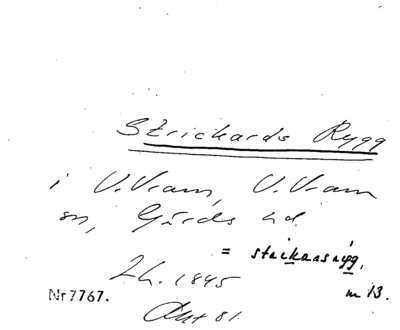 Strickards Rygg
i V. Vram, V. Vram
sn, Gärds hd.
= stäckaasrygg,
Lh. 1845
Nr 7767. m 13.
Akt 81.